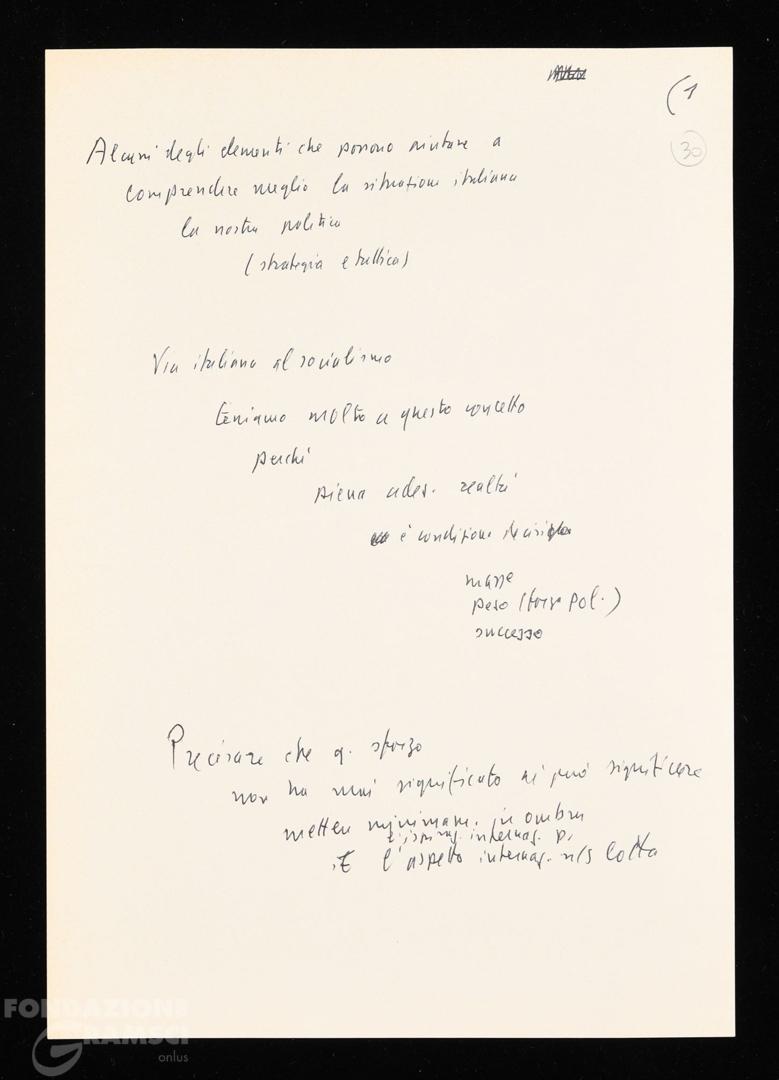 (1
30
Alcuni degli elementi che possono aiutare a
comprendere meglio la situazione italiana
la nostra politica
(strategia e tattica)
Via italiana al socialismo
teniamo molto a questo concetto
perché
piena ades. realtà
è condizione decisiva
masse
peso (forze pol.)
successo
Precisare che q. sforzo
non ha mai significato né può significare
mettere minimam. in ombra
internaz. p.
l'aspetto internaz. ns lotta
FONDAZIONE
GRAMSCI
onlus